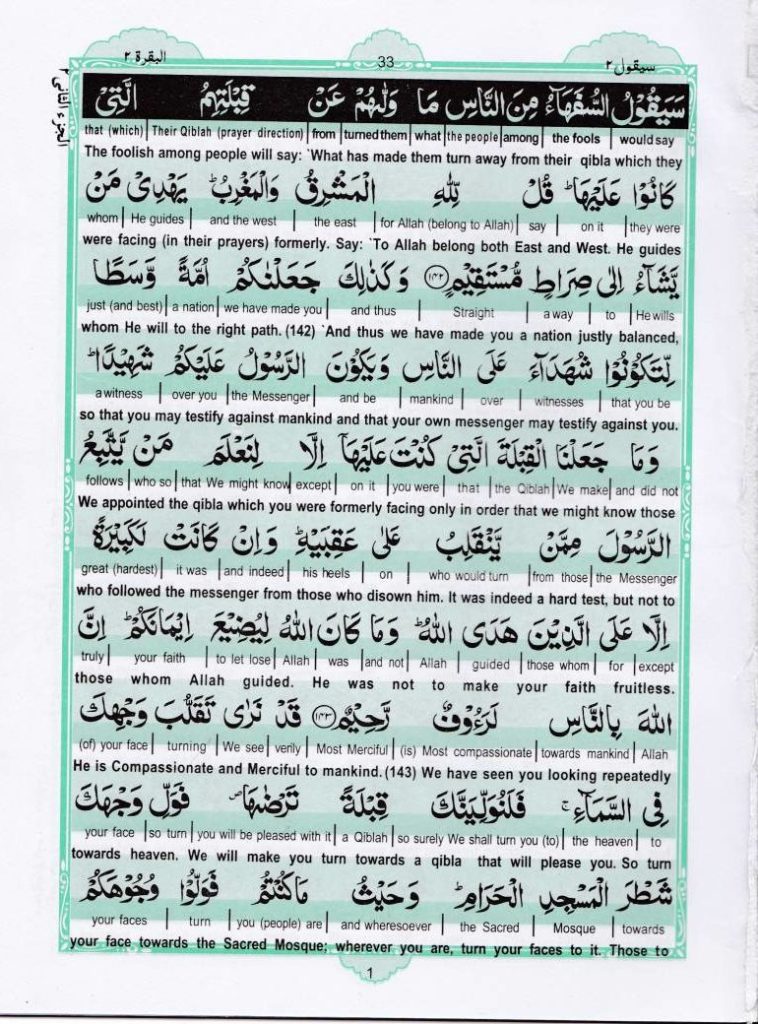 البقرة ٢
33
سيقول ٢
الجزء الثانى ٢
سَيَقُوْلُ السُّفَهَآءُ مِنَ النَّاسِ مَا وَلّٰىهُمْ عَنْ قِبْلَتِهِمُ الَّتِىْ
that (which) | Their Qiblah (prayer direction) | from | turned them | what | the people | among | the fools | would say
The foolish among people will say: `What has made them turn away from their qibla which they
كَانُوْا عَلَيْهَا ؕ قُلْ لِّلّٰهِ الْمَشْرِقُ وَالْمَغْرِبُ ؕ يَهْدِىْ مَنْ
whom | He guides | and the west | the east | for Allah (belong to Allah) | say | on it | they were
were facing (in their prayers) formerly. Say: `To Allah belong both East and West. He guides
يَّشَآءُ اِلٰى صِرَاطٍ مُّسْتَقِيْمٍ ﴿۱۴۲﴾ وَكَذٰلِكَ جَعَلْنٰكُمْ اُمَّةً وَّسَطًا
just (and best) | a nation | we have made you | and thus | Straight | a way | to | He wills
whom He will to the right path. (142) `And thus we have made you a nation justly balanced,
لِّتَكُوْنُوْا شُهَدَآءَ عَلَى النَّاسِ وَيَكُوْنَ الرَّسُوْلُ عَلَيْكُمْ شَهِيْدًا ؕ
a witness | over you | the Messenger | and be | mankind | over | witnesses | that you be
so that you may testify against mankind and that your own messenger may testify against you.
وَمَا جَعَلْنَا الْقِبْلَةَ الَّتِىْ كُنْتَ عَلَيْهَآ اِلَّا لِنَعْلَمَ مَنْ يَّتَّبِعُ
follows | who so | that We might know | except | on it | you were | that | the Qiblah | We make | and did not
We appointed the qibla which you were formerly facing only in order that we might know those
الرَّسُوْلَ مِمَّنْ يَّنْقَلِبُ عَلٰى عَقِبَيْهِ ؕ وَاِنْ كَانَتْ لَكَبِيْرَةً
great (hardest) | it was | and indeed | his heels | on | who would turn | from those | the Messenger
who followed the messenger from those who disown him. It was indeed a hard test, but not to
اِلَّا عَلَى الَّذِيْنَ هَدَى اللّٰهُ ؕ وَمَا كَانَ اللّٰهُ لِيُضِيْعَ اِيْمَانَكُمْ ؕ اِنَّ
truly | your faith | to let lose | Allah | was | and not | Allah | guided | those whom | for | except
those whom Allah guided. He was not to make your faith fruitless.
اللّٰهَ بِالنَّاسِ لَرَءُوْفٌ رَّحِيْمٌ ﴿۱۴۳﴾ قَدْ نَرٰى تَقَلُّبَ وَجْهِكَ
(of) your face | turning | We see | verily | Most Merciful | (is) Most compassionate | towards mankind | Allah
He is Compassionate and Merciful to mankind. (143) We have seen you looking repeatedly
فِى السَّمَآءِ ۚ فَلَنُوَلِّيَنَّكَ قِبْلَةً تَرْضٰىهَا ۪ فَوَلِّ وَجْهَكَ
your face | so turn | you will be pleased with it | a Qiblah | so surely We shall turn you (to) | the heaven | to
towards heaven. We will make you turn towards a qibla that will please you. So turn
شَطْرَ الْمَسْجِدِ الْحَرَامِ ؕ وَحَيْثُ مَا كُنْتُمْ فَوَلُّوْا وُجُوْهَكُمْ
your faces | turn | you (people) are | and wheresoever | the Sacred | Mosque | towards
your face towards the Sacred Mosque; wherever you are, turn your faces to it. Those to
1